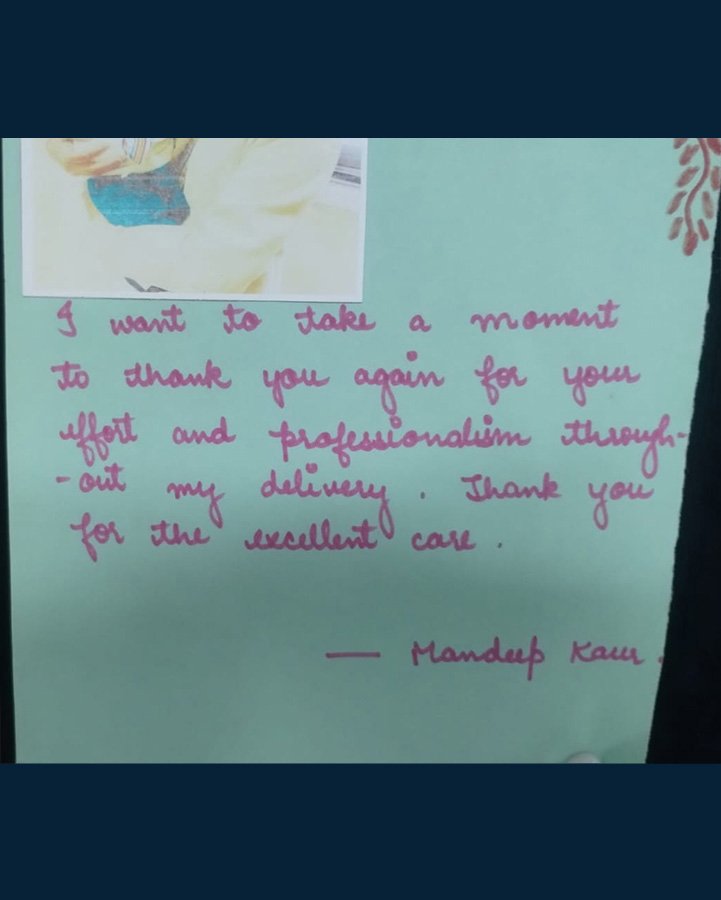 I want to take a moment
to thank you again for your
effort and professionalism through-
-out my delivery. Thank you
for the excellent care.
— Mandeep Kaur.